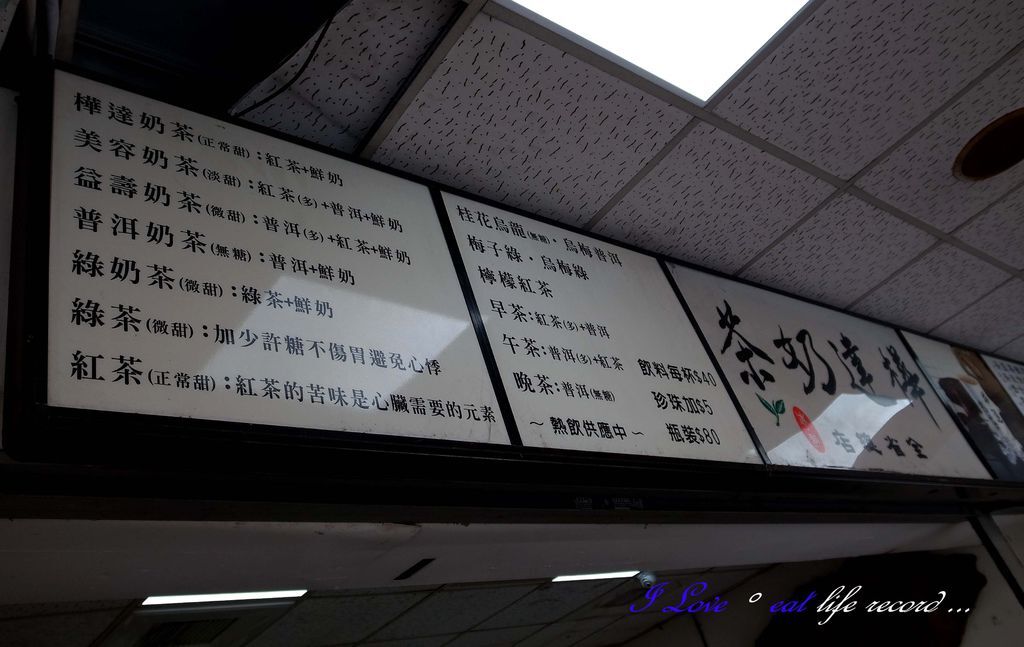 樺達奶茶(正常甜)：紅茶+鮮奶
美容奶茶(淡甜)：紅茶(多)+普洱+鮮奶
益壽奶茶(微甜)：普洱(多)+紅茶+鮮奶
普洱奶茶(無糖)：普洱+鮮奶
綠奶茶(微甜)：綠茶+鮮奶
綠茶(微甜)：加少許糖不傷胃避免心悸
紅茶(正常甜)：紅茶的苦味是心臟需要的元素
桂花烏龍(無糖)·烏梅普洱
梅子綠·烏梅綠
檸檬紅茶
早茶：紅茶(多)+普洱
午茶：普洱(多)+紅茶 飲料每杯$40
晚茶：普洱(無糖) 珍珠加$5
～熱飲供應中～ 瓶裝$80
茶奶達樺
店 省全
I Love ° eat life record ...